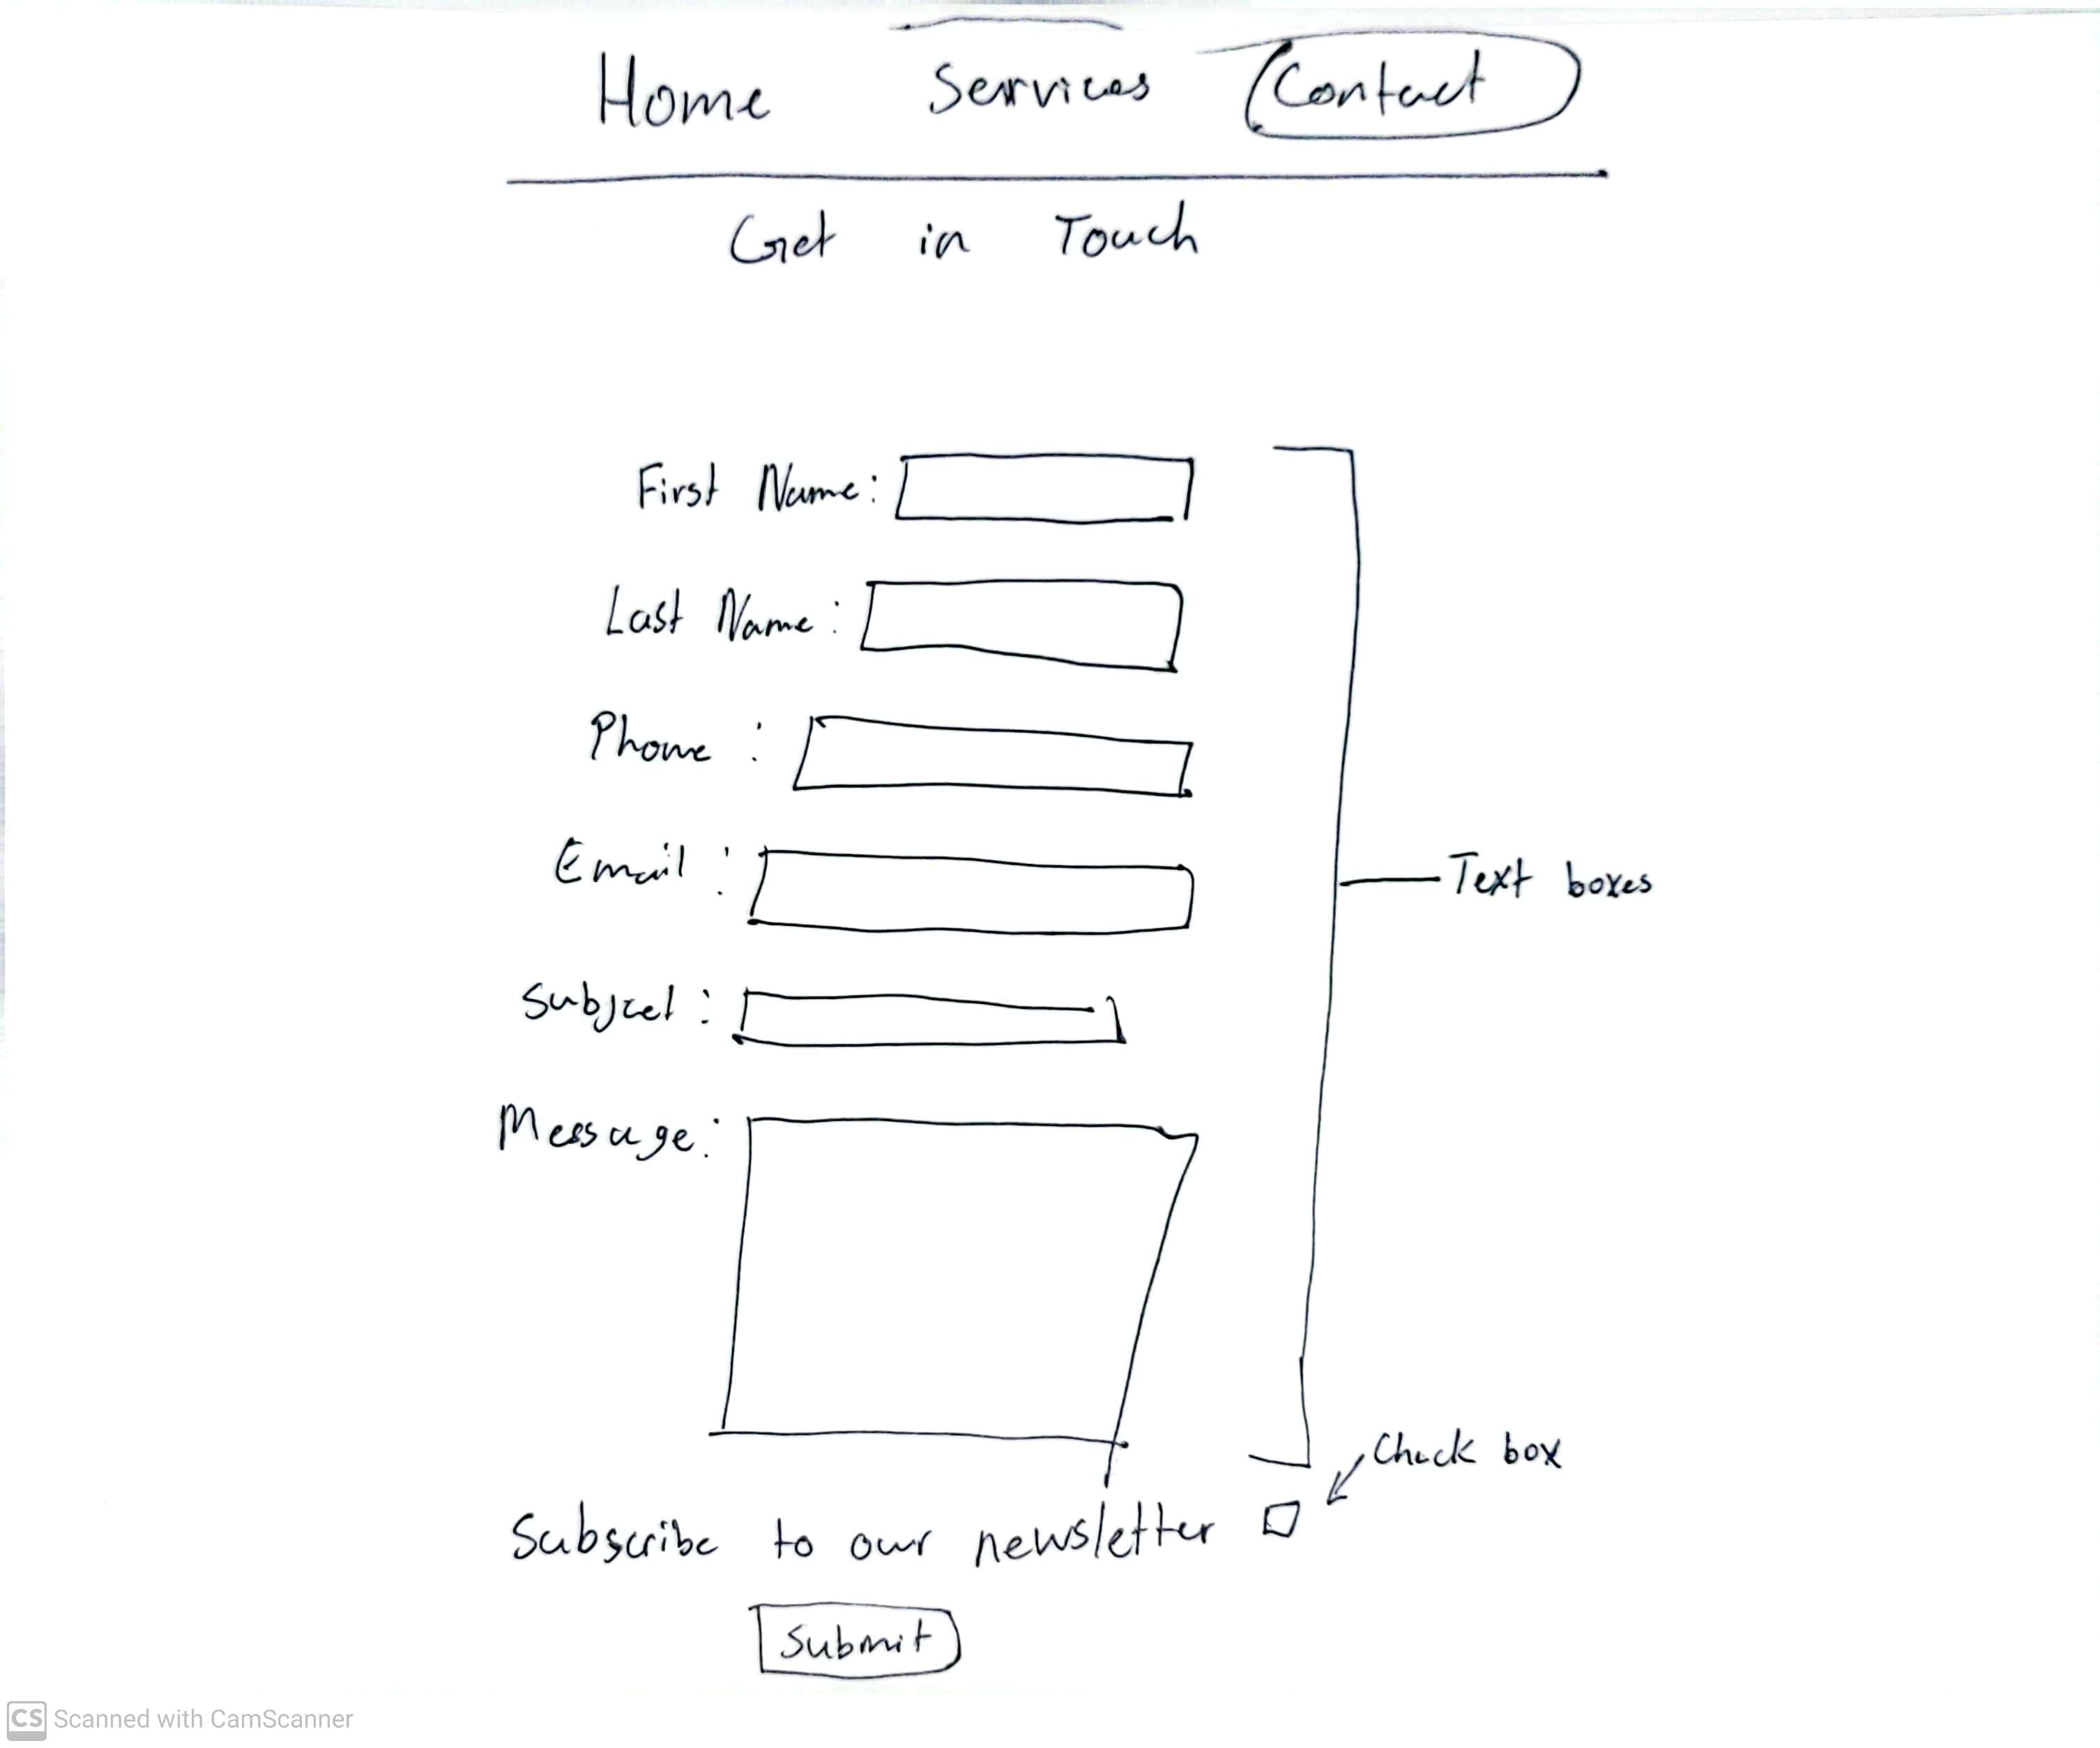 Home Services Contact
Get in Touch
First Name:
Last Name:
Phone :
Email :
Text boxes
Subject :
Message:
Check box
Subscribe to our newsletter
Submit
CS Scanned with CamScanner